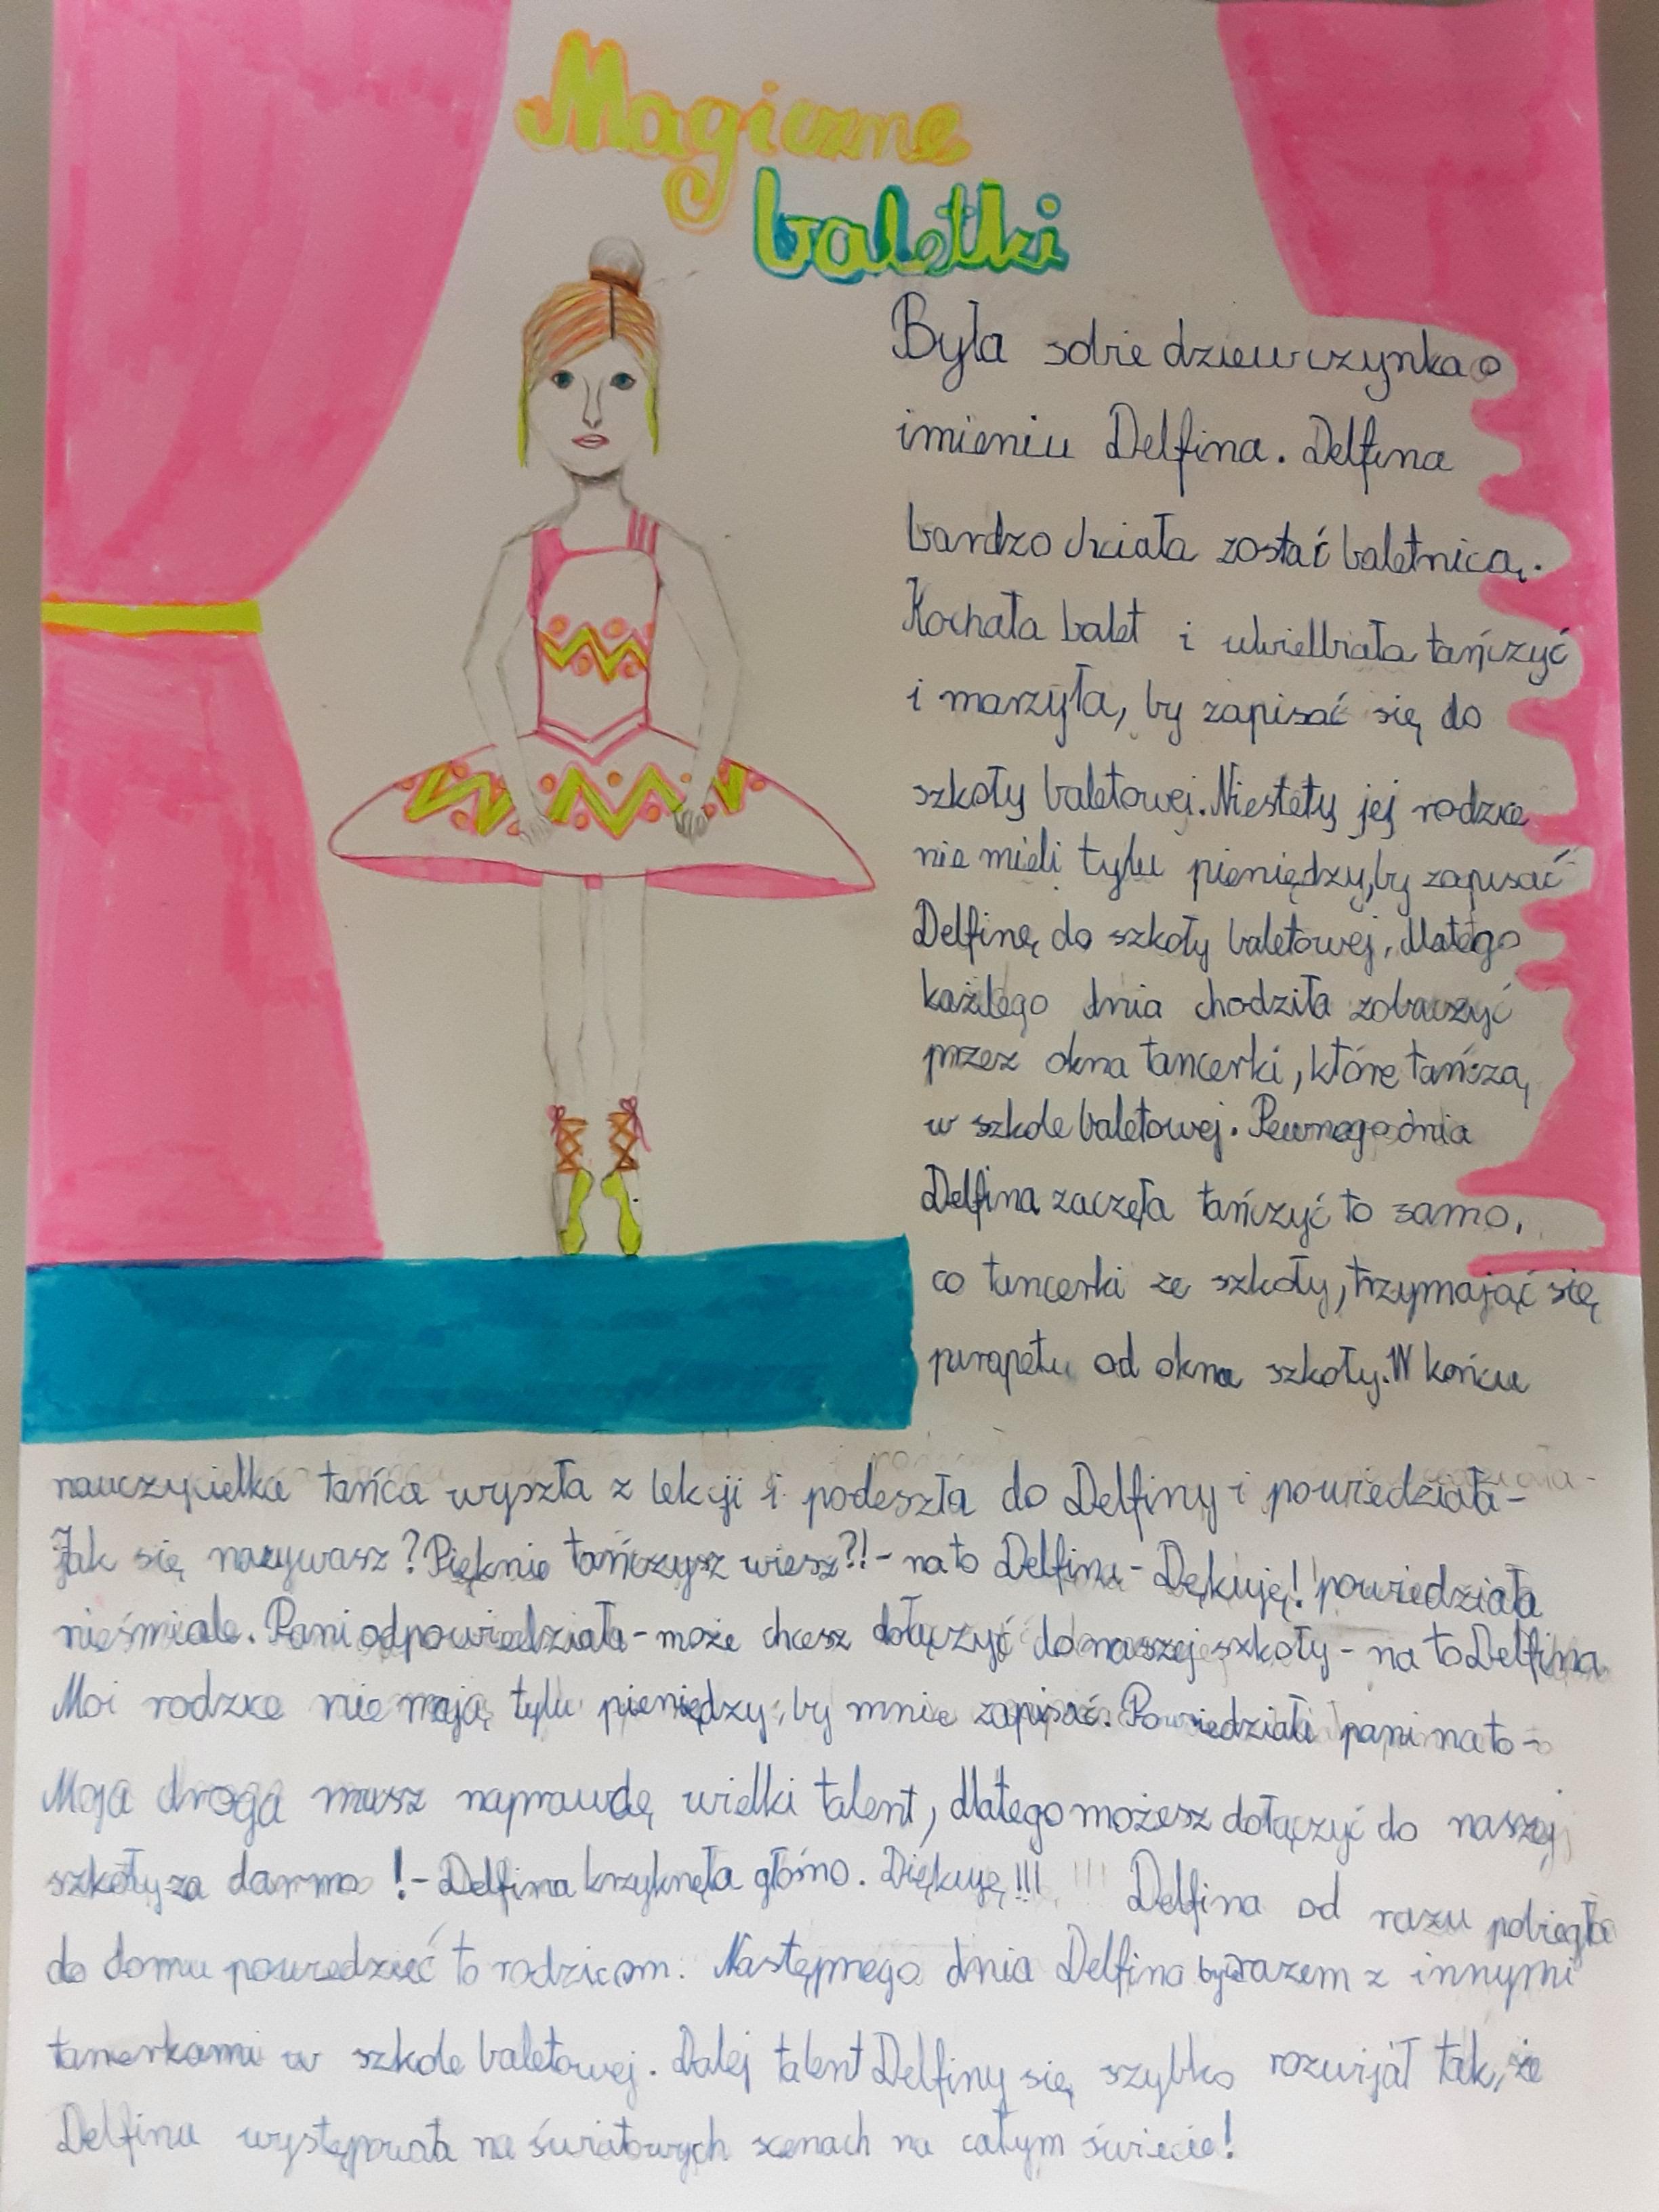 Magiczne
baletki
Była sobie dziewczynka o
imieniu Delfina. Delfina
bardzo chciała zostać baletnicą.
Kochała balet i uwielbiała tańczyć
i marzyła, by zapisać się do
szkoły baletowej. Niestety jej rodzice
nie mieli tylu pieniędzy, by zapisać
Delfinę do szkoły baletowej, dlatego
każdego dnia chodziła zobaczyć
przez okna tancerki, które tańczą
w szkole baletowej. Pewnego dnia
Delfina zaczęła tańczyć to samo,
co tancerki ze szkoły, trzymając się
parapetu od okna szkoły. W końcu
nauczycielka tańca wyszła z lekcji i podeszła do Delfiny i powiedziała-
Jak się nazywasz? Pięknie tańczysz wiesz?!- na to Delfina- Dękuję! powiedziała
nieśmiale. Pani odpowiedziała- może chcesz dołączyć do naszej szkoły- na to Delfina
Moi rodzice nie mają tylu pieniędzy, by mnie zapisać. Powiedziała pani na to-
Moja droga masz naprawdę wielki talent, dlatego możesz dołączyć do naszej
szkoły za darmo!- Delfina krzyknęła głośno. Dziękuję!!! Delfina od razu pobiegła
do domu powiedzieć to rodzicom. Następnego dnia Delfina była razem z innymi
tancerkami w szkole baletowej. Dalej talent Delfiny się szybko rozwijał tak, że
Delfina występowała na światowych scenach na całym świecie!